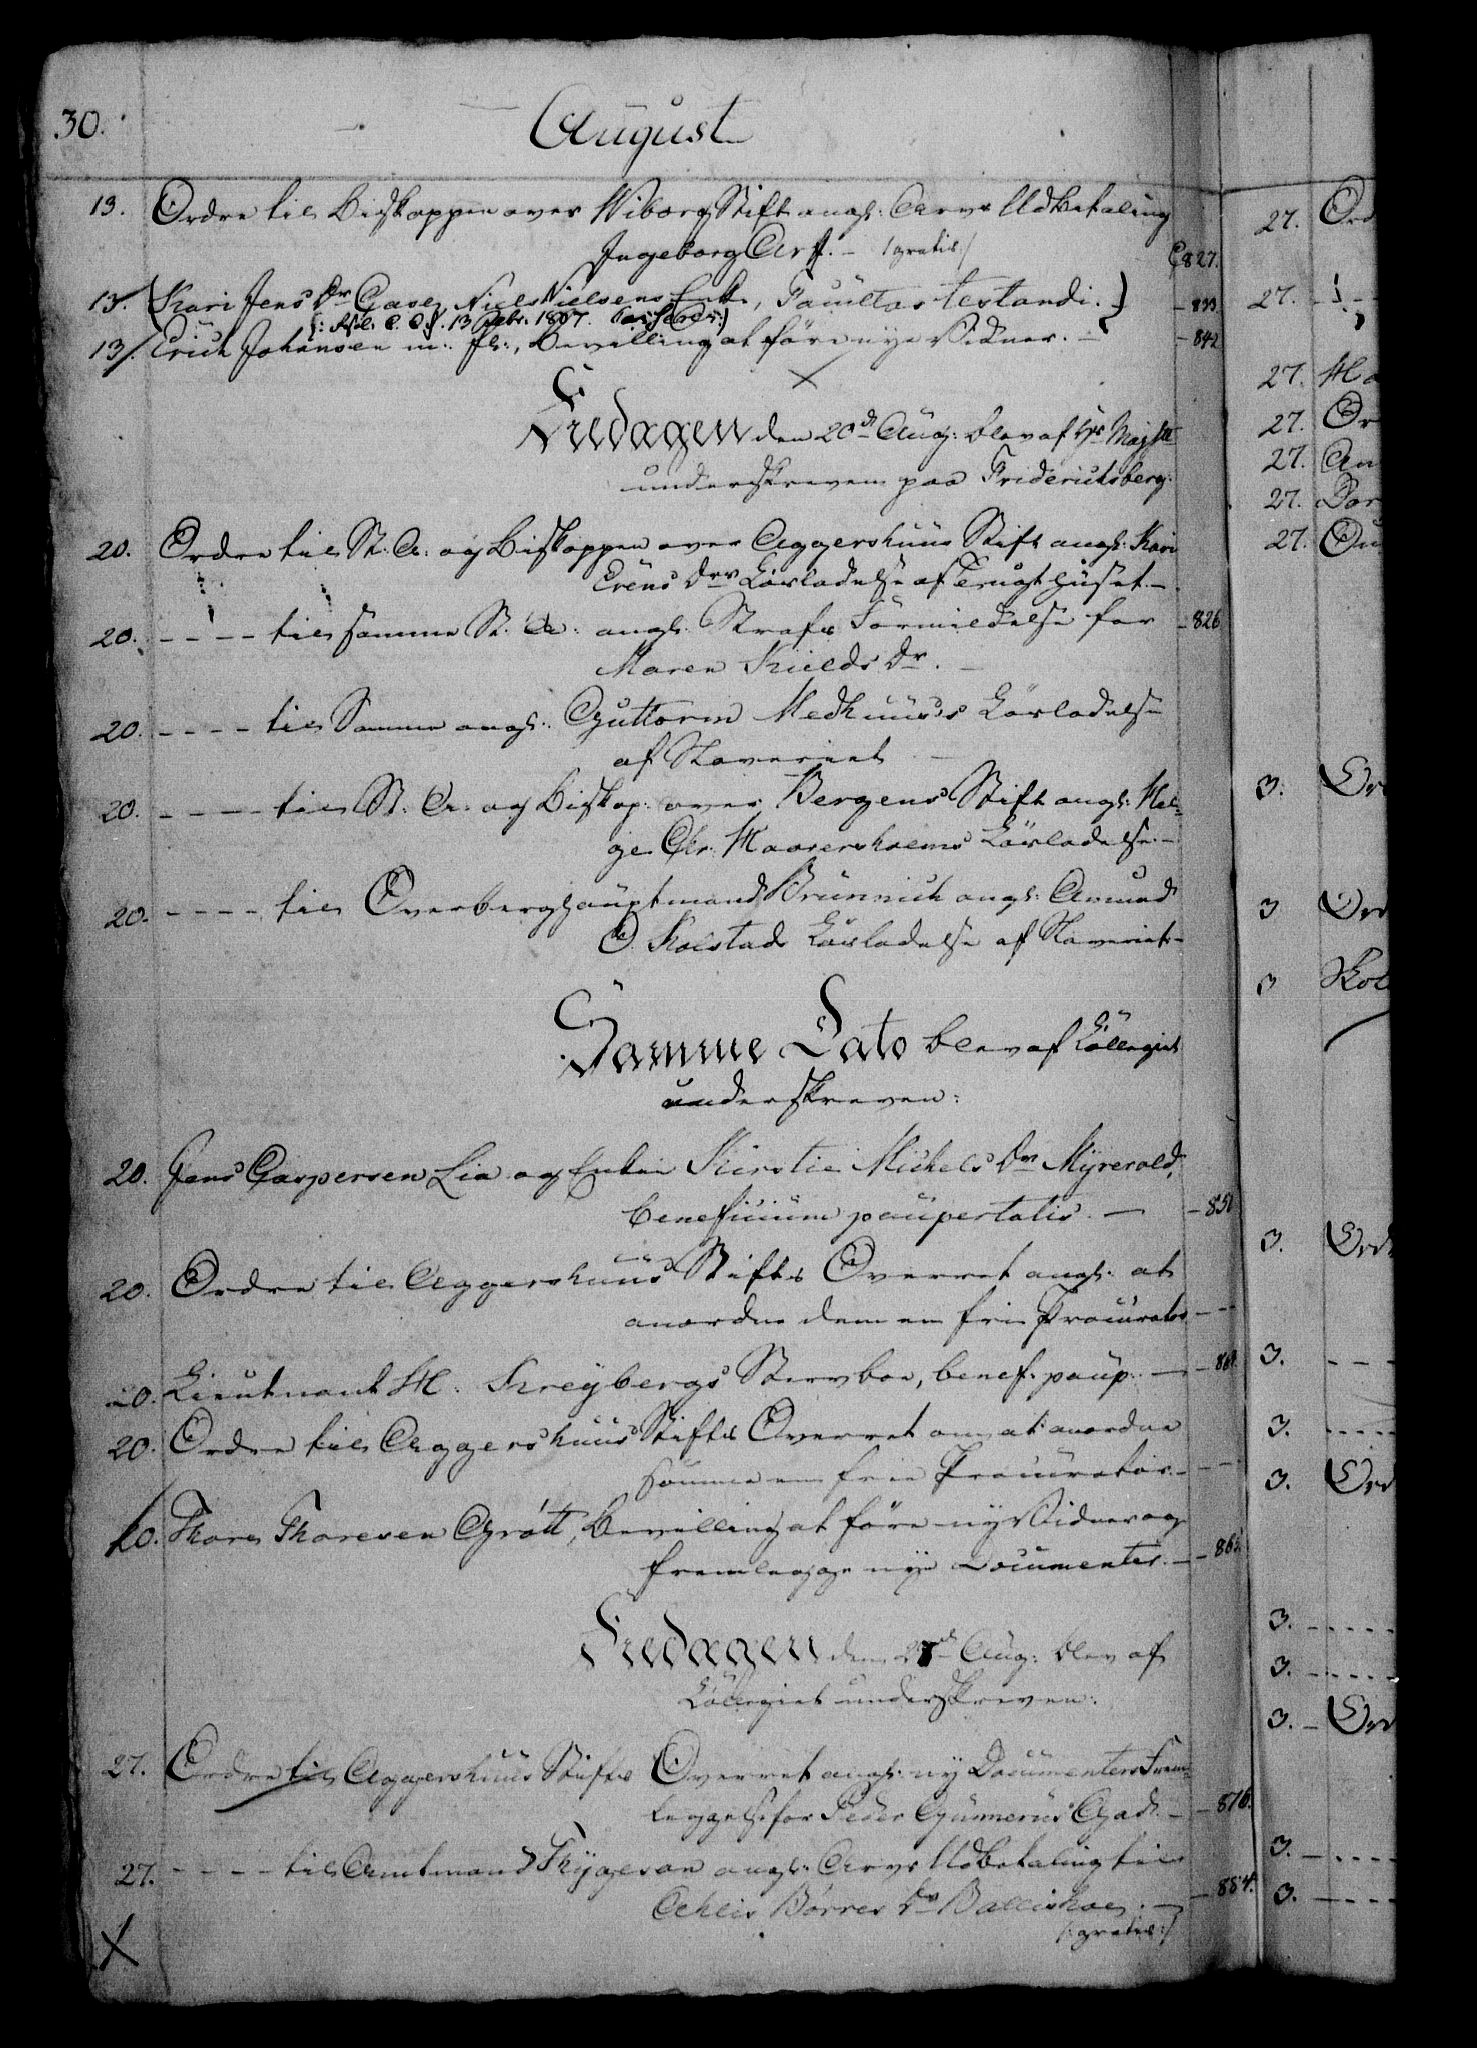 30.
August
13. Ordre til Biskoppen over Wiborg Stift angl: Arvs Udbetaling
Ingeborg Arf. - /gratis:/ C 827.
13. (Kari Jens Dr Niels Nielsens Enke, Facultas testandi.) - 833
13. Erich Johansen m: fl:, Bevilling at före nye Vidner. - - 842
Fredagen den 20de Aug: blev af Hs Majst
underskreven paa Friderichsberg:
20. Ordre til St: A: og Biskoppen over Aggershuus Stift angl: Kari
Erens Drs Löxladelse af Tugthuset. -
20. - - - - til samme St: A: angl: Strafs Formildelse for - 826
Maren Kields Dr. -
20. - - - - til Samme angl: Guttorm Medhuus's Löxladelse
af Slaveriet -
20. - - - - til St. A: og Biskop: over Bergens Stift angl: Hel-
ge Chr. Löxladelse. -
20. - - - - til Overberghauptmand Brünnich angl: Amund
O. Kolstads Löxladelse af Slaveriet -
Samme Dato blev af Collegiet
underskreven:
20. Jens Caspersen Lia og Enken Kirstie Michels Dr Myrevold,
beneficium paupertatis. - - 850
20. Ordre til Aggershuus Stifts Overret angl: at
anordne dem en frie Procurator - - -
20. Lieutnant H: Kreybergs Stervboe, benef: paup: - - 861.
20. Ordre til Aggershuus Stifts Overret om at anordne
samme en frie Procurator. - - -
20. Thore Thoresen Grött, Bevilling at före ny Vidner og
fremlegge nye Documenter. - - 863.
Fredagen den 27de Aug: blev af
Collegiet underskreven:
27. Ordre til Aggershuus Stifts Overret angl: ny Documenters Frem-
leggelse for Peder Gunnerius Gad. - - 876.
27. - - - - til Amtmand Thygeson angl: Arvs Udbetaling til
Børres Dr - - 884.
/:gratis:/
X
27. Ord
27. - - -
27. Ha
27. Or
27. An
27.
27.
3. Or
3 Ord
3
3. Ord
3. - - -
3. - - - -
3. Ord
3. - - - -
3. - - - -
3. - Ord
3. - - - -
3. - - - -